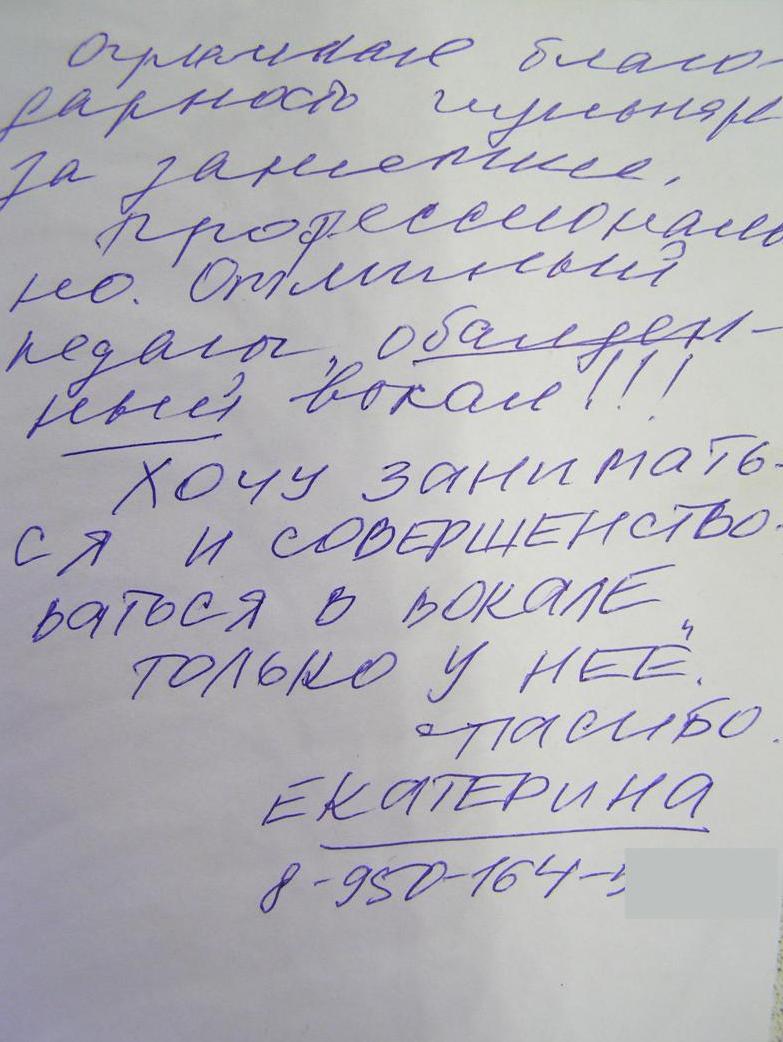 Огромная благо-
дарность Гульнаре
за занятие,
профессиональ
но. Отличный
педагог, обалден-
ный вокал!!!
ХОЧУ ЗАНИМАТЬ-
СЯ И СОВЕРШЕНСТВО-
ВАТЬСЯ В ВОКАЛЕ
ТОЛЬКО У НЕЁ.
СПАСИБО.
ЕКАТЕРИНА
8-950-164-